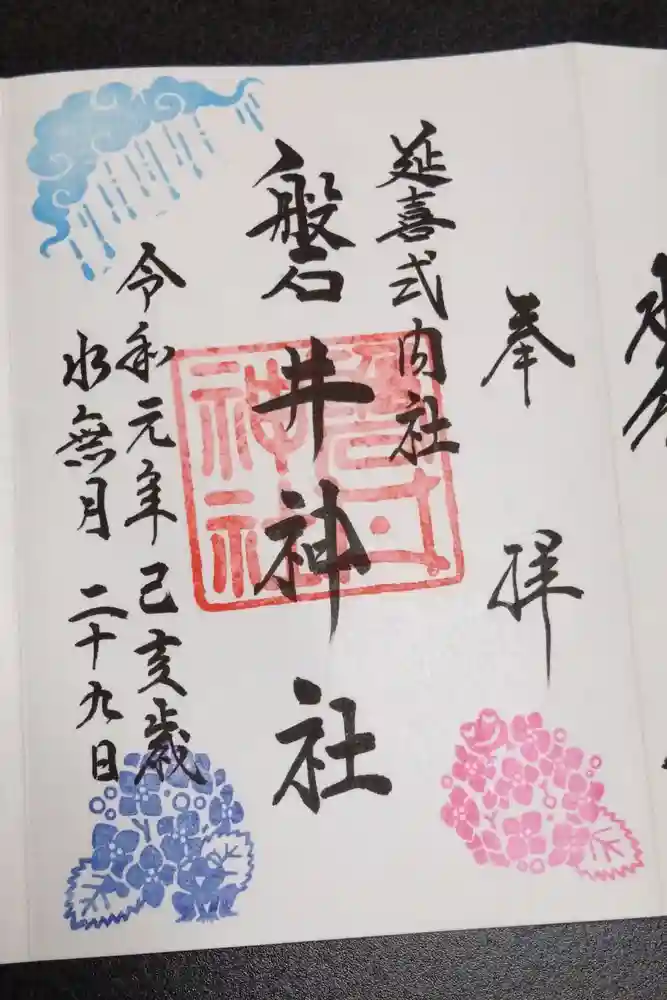 奉拝
延喜式内社
磐井神社
令和元年己亥歳
水無月 二十九日
磐井神社